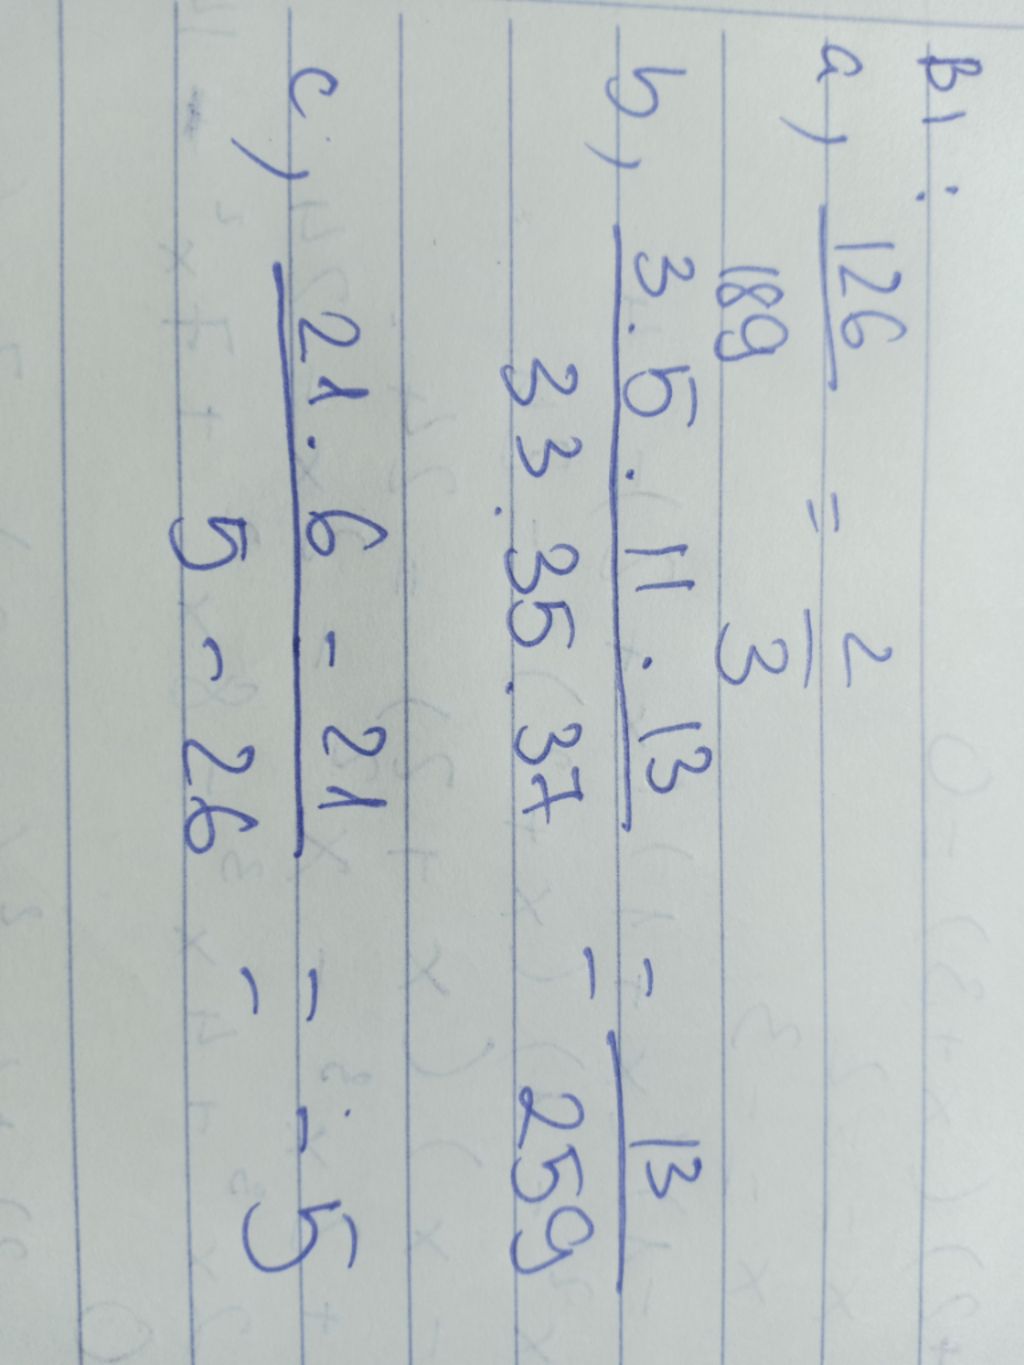 B1:
a, 126/189 = 2/3
b, 3.5.11.13/33.35.37 = 13/259
c, 21.6-21/5-26 = -5